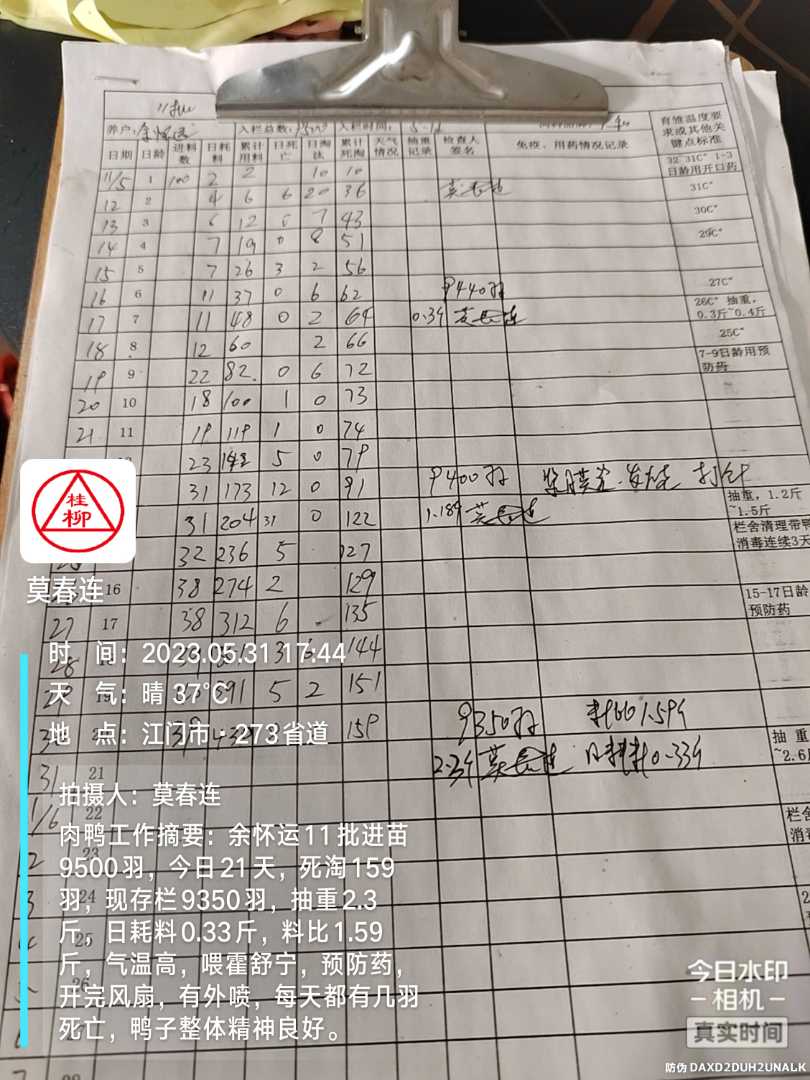 11批
养户：余怀运 入栏总数：9500 入栏时间：5-12
日期 日龄 进料数 日耗料 累计用料 日死亡 日淘汰 累计死淘 天气情况 抽重记录 检查人签名 免疫、用药情况记录 育雏温度要求或其他关键点标准
11/5 1 100 2 2 10 10 32-31C° 1-3日龄用开口药
12 2 4 6 6 20 36 莫春连 31C°
13 3 6 12 0 7 43 30C°
14 4 7 19 0 8 51 29C°
15 5 7 26 3 2 56
16 6 11 37 0 6 62 9440羽 27C°
17 7 11 48 0 2 64 0.39 莫春连 26C° 抽重，0.3斤~0.4斤
18 8 12 60 2 66 25C°
19 9 22 82 0 6 72 7-9日龄用预防药
20 10 18 100 1 0 73
21 11 19 119 1 0 74
23 142 5 0 79
31 173 12 0 91 9400羽 浆膜炎 打针
31 204 31 0 122 1.189 莫春连 抽重，1.2斤~1.5斤
32 236 5 127 栏舍清理带鸭消毒连续3天
16 38 274 2 129
27 17 38 312 6 135 15-17日龄预防药
28 3 6 144
19 391 5 2 151
39 159 9350羽 料比1.59斤
31 21 2.3斤 莫春连 日耗料0.33斤 抽重
~2.6
1/6 22
2 23
3 24
4 25
5 26
桂柳
莫春连
时 间：2023.05.31 17:44
天 气：晴 37℃
地 点：江门市·273省道
拍摄人：莫春连
肉鸭工作摘要：余怀运11批进苗
9500羽，今日21天，死淘159
羽，现存栏9350羽，抽重2.3
斤，日耗料0.33斤，料比1.59
斤，气温高，喂霍舒宁，预防药，
开完风扇，有外喷，每天都有几羽
死亡，鸭子整体精神良好。
今日水印
相机
真实时间
防伪 DAXD2DUH2UNALK